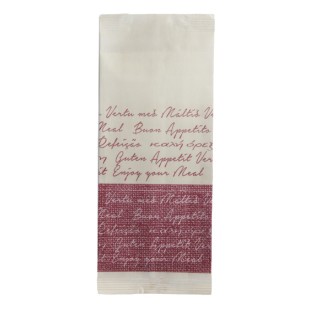 Vertu með Máltíð Ve
Meal Buon Appetito
Refeição καλή όρεξ
Guten Appetit Ver
it Enjoy your Meal
Vertu með Máltíð Ve
Meal Buon Appetito
Refeição καλή όρεξ
Guten Appetit Ver
Enjoy your Meal